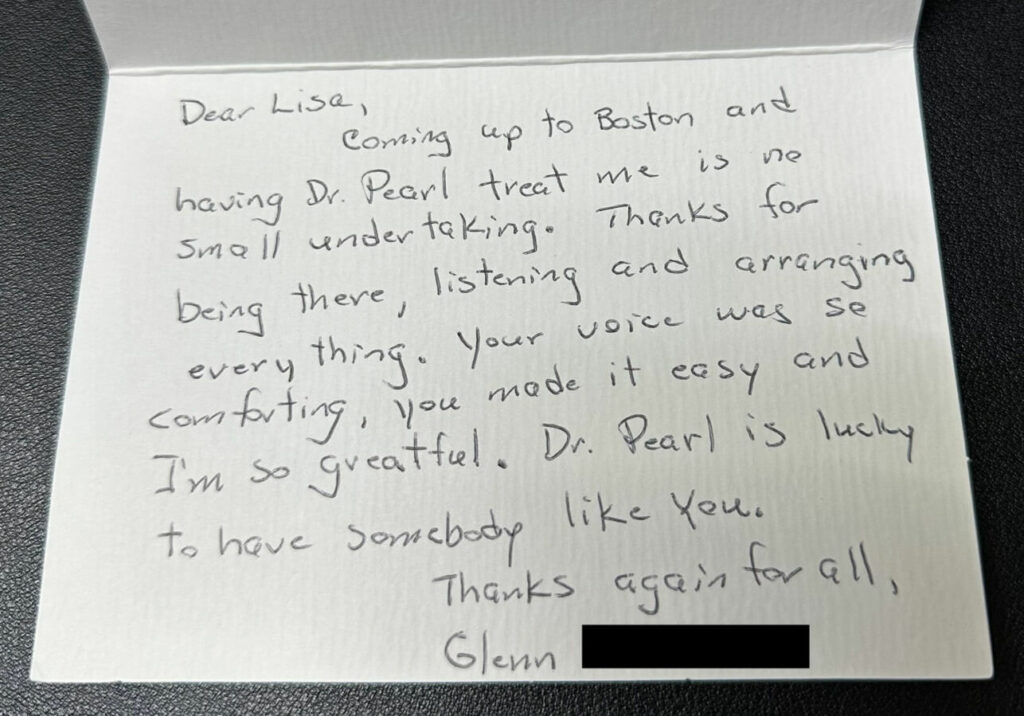 Dear Lisa,
Coming up to Boston and
having Dr. Pearl treat me is no
small undertaking. Thanks for
being there, listening and arranging
everything. Your voice was so
comforting, you made it easy and
I'm so greatful. Dr. Pearl is lucky
to have somebody like you.
Thanks again for all,
Glenn